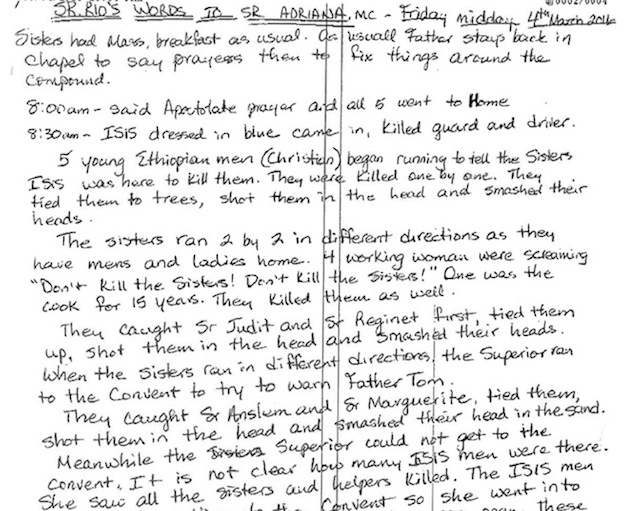 0002/0004
SR.RIO'S WORDS TO SR ADRIANA, MC - Friday midday 4th March 2016
Sisters had Mass, breakfast as usual. As usuall Father stays back in
Chapel to say prayers then to fix things around the
Compound.
8:00am - said Apostolate prayer and all 5 went to Home
8:30am - ISIS dressed in blue came in, killed guard and driver.
5 young Ethiopian men (Christian) began running to tell the Sisters
ISIS was here to kill them. They were killed one by one. They
tied them to trees, shot them in the head and smashed their
heads.
The sisters ran 2 by 2 in different directions as they
have mens and ladies home. 4 working woman were screaming
"Don't kill the Sisters! Don't kill the Sisters!" One was the
cook for 15 years. They killed them as well.
They caught Sr Judit and Sr Reginet first, tied them
up, shot them in the head and smashed their heads.
When the sisters ran in different directions, the Superior ran
to the Convent to try to warn Father Tom.
They caught Sr Anslem and Sr Marguerite, tied them,
shot them in the head and smashed their head in the sand.
Meanwhile the Sisters Superior could not get to the
convent, It is not clear how many ISIS men were there.
She saw all the sisters and helpers killed. The ISIS men
Convent so she went into
these